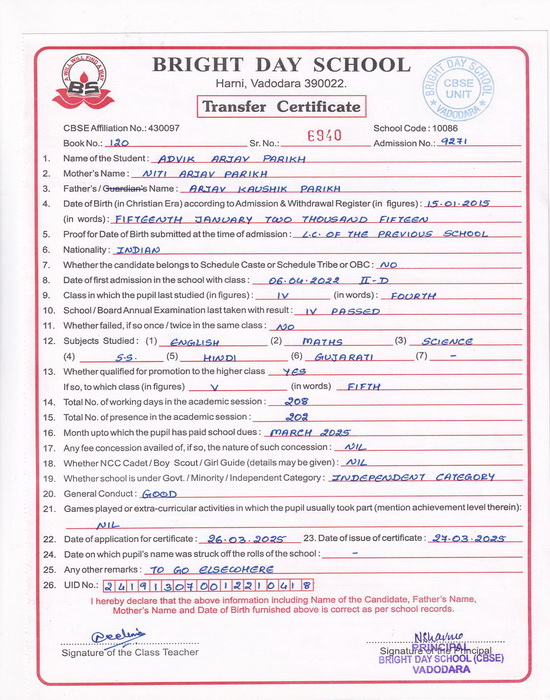 A WILL WILL FIND A WAY
BS
BRIGHT DAY SCHOOL
Harni, Vadodara 390022.
Transfer Certificate
BRIGHT DAY SCHOOL
CBSE
UNIT
VADODARA
CBSE Affiliation No.: 430097 School Code : 10086
Book No.: 120 Sr. No.: 6940 Admission No.: 9271
1. Name of the Student : ADVIK ARJAV PARIKH
2. Mother's Name : NITI ARJAV PARIKH
3. Father's / Guardian's Name : ARJAV KAUSHIK PARIKH
4. Date of Birth (in Christian Era) according to Admission & Withdrawal Register (in figures) : 15.01.2015
(in words) : FIFTEENTH JANUARY TWO THOUSAND FIFTEEN
5. Proof for Date of Birth submitted at the time of admission : L.C. OF THE PREVIOUS SCHOOL
6. Nationality : INDIAN
7. Whether the candidate belongs to Schedule Caste or Schedule Tribe or OBC : NO
8. Date of first admission in the school with class : 06.04.2022 II-D
9. Class in which the pupil last studied (in figures) : IV (in words) : FOURTH
10. School / Board Annual Examination last taken with result : IV PASSED
11. Whether failed, if so once / twice in the same class : NO
12. Subjects Studied : (1) ENGLISH (2) MATHS (3) SCIENCE
(4) S.S. (5) HINDI (6) GUJARATI (7) -
13. Whether qualified for promotion to the higher class YES
If so, to which class (in figures) V (in words) FIFTH
14. Total No. of working days in the academic session : 208
15. Total No. of presence in the academic session : 202
16. Month upto which the pupil has paid school dues : MARCH 2025
17. Any fee concession availed of, if so, the nature of such concession : NIL
18. Whether NCC Cadet / Boy Scout / Girl Guide (details may be given) : NIL
19. Whether school is under Govt. / Minority / Independent Category : INDEPENDENT CATEGORY
20. General Conduct : GOOD
21. Games played or extra-curricular activities in which the pupil usually took part (mention achievement level therein) :
NIL
22. Date of application for certificate : 26.03.2025 23. Date of issue of certificate : 27.03.2025
24. Date on which pupil's name was struck off the rolls of the school : -
25. Any other remarks : TO GO ELSEWHERE
26. UID No.: 241913070012210418
I hereby declare that the above information including Name of the Candidate, Father's Name,
Mother's Name and Date of Birth furnished above is correct as per school records.
Signature of the Class Teacher Signature of the Principal
PRINCIPAL
BRIGHT DAY SCHOOL (CBSE)
VADODARA